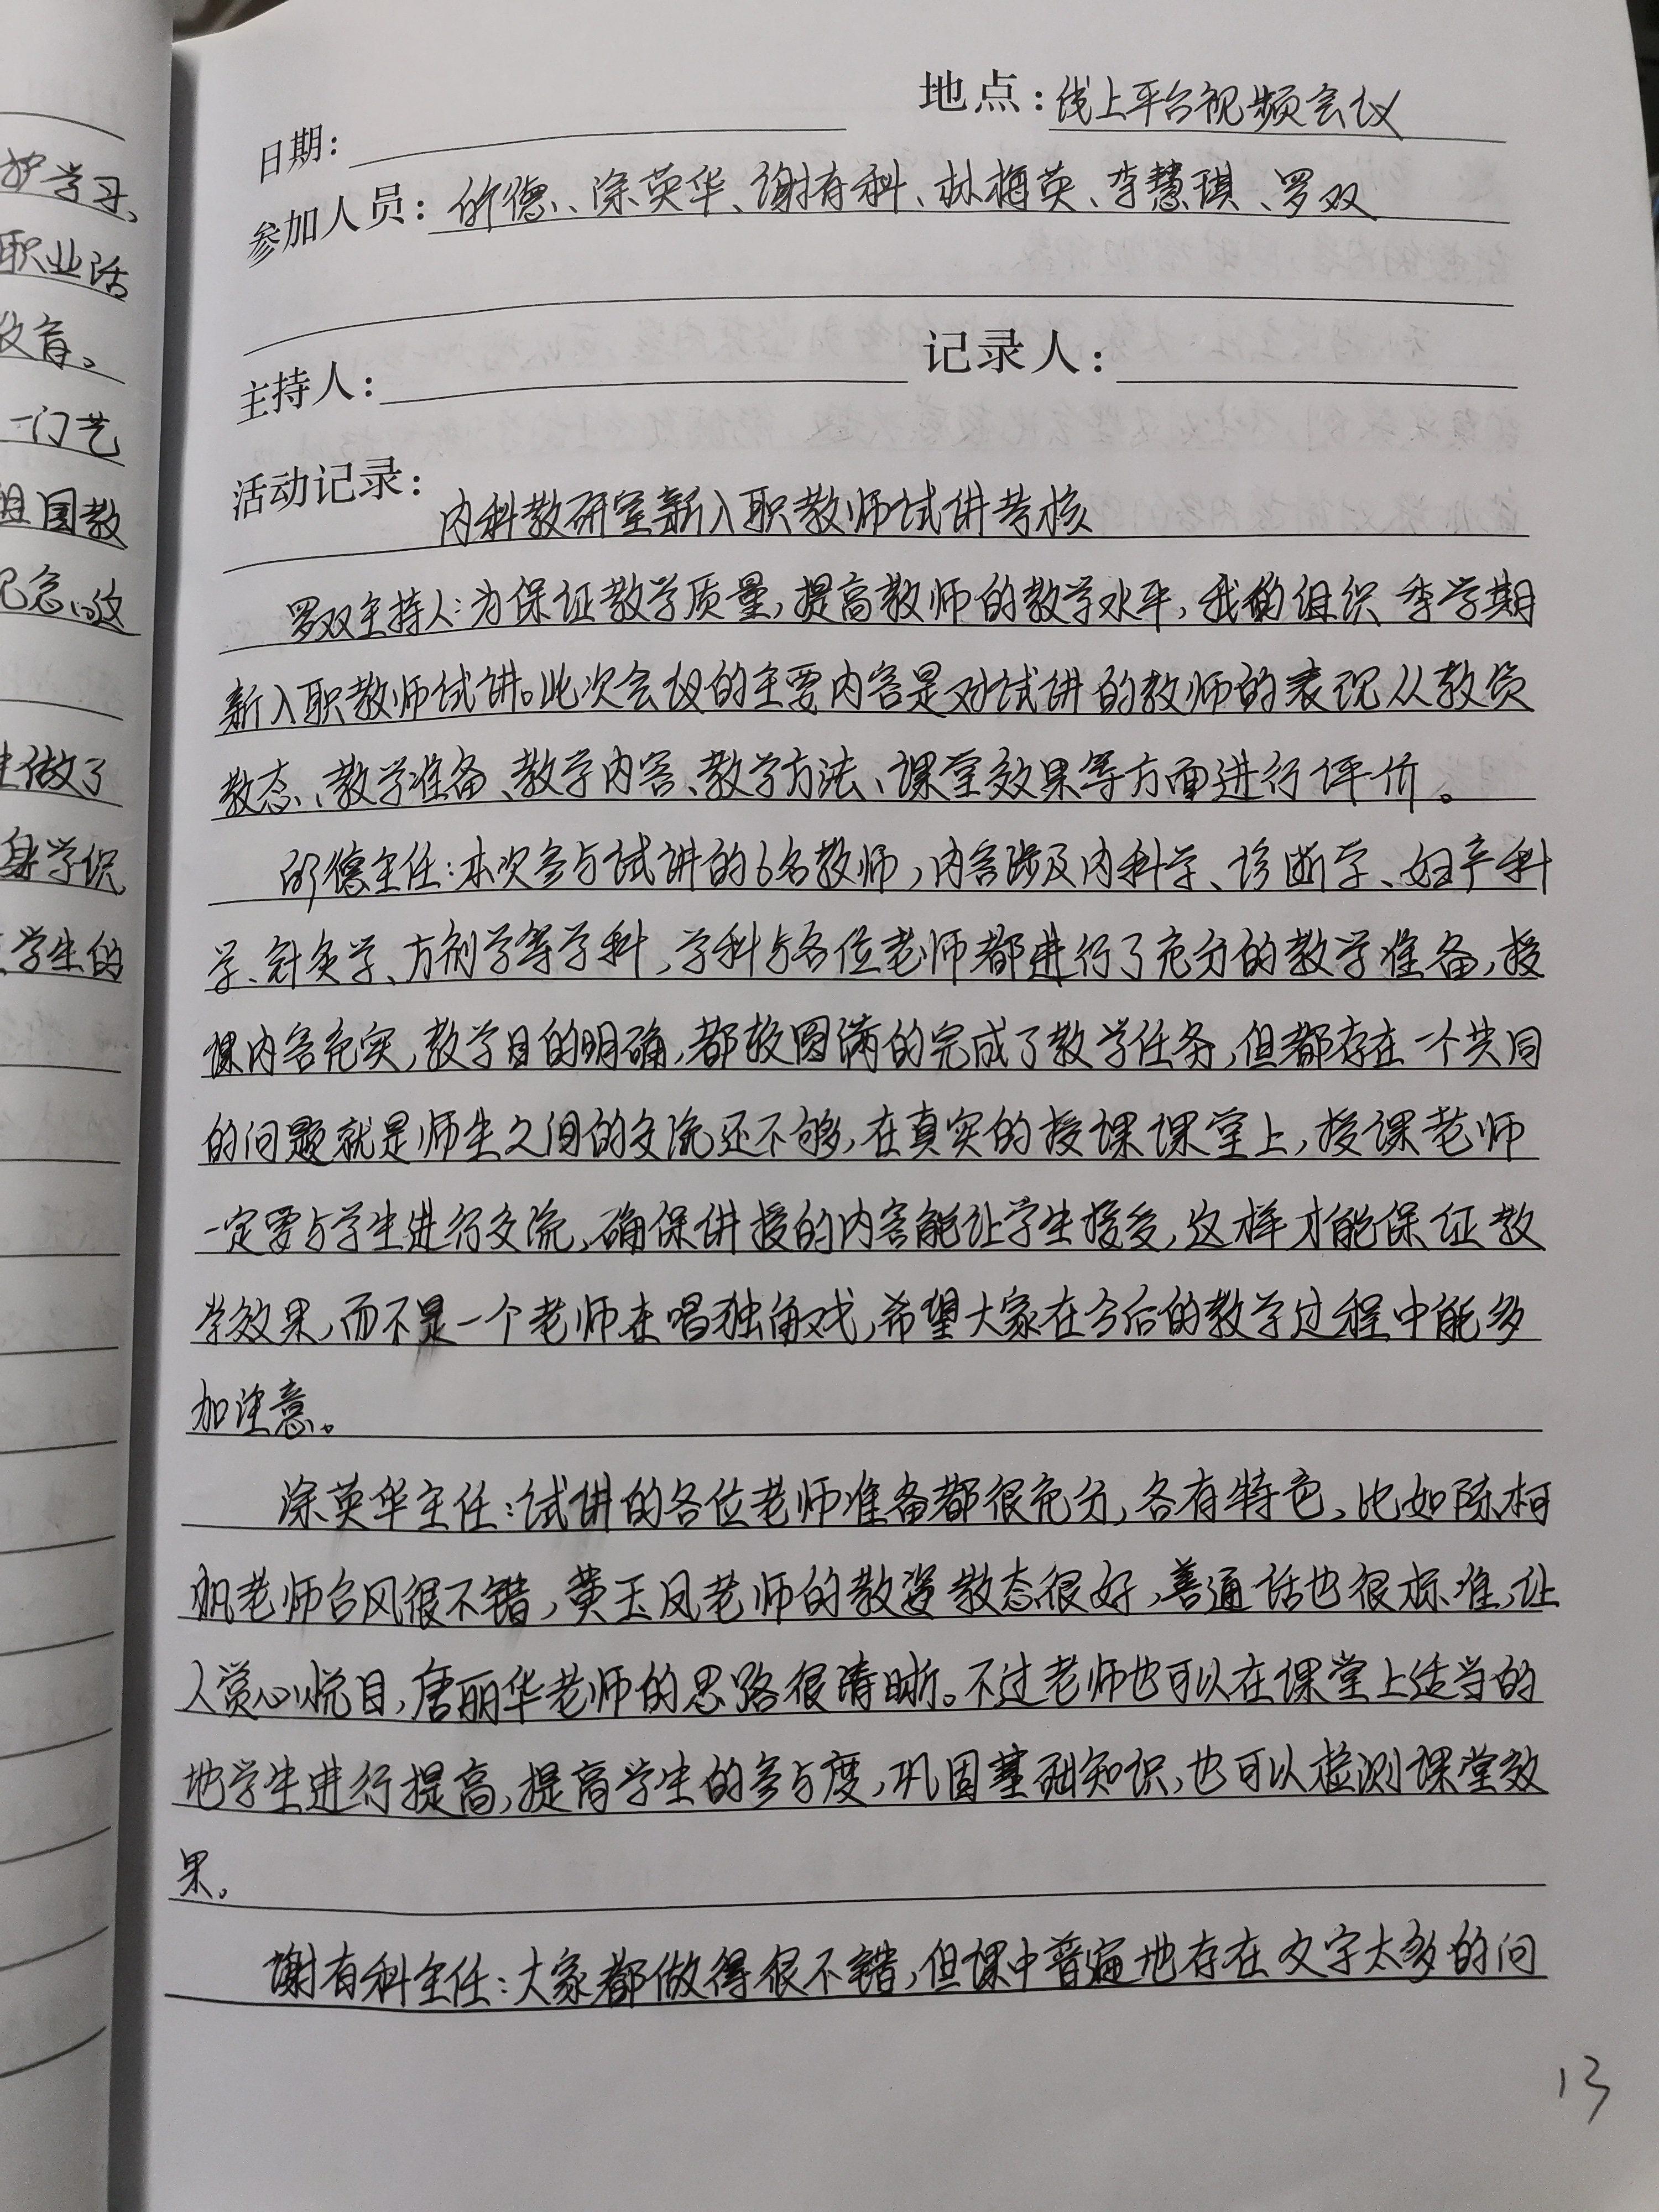 地点：线上平台视频会议
日期：
参加人员：邱德、涂英华、谢有科、林梅英、李慧琪、罗双
主持人：
记录人：
活动记录：
内科教研室新入职教师试讲考核
罗双主持人：为保证教学质量，提高教师的教学水平，我的组织 季学期
新入职教师试讲。此次会议的主要内容是对试讲的教师的表现从教员
教态、教学准备、教学内容、教学方法、课堂效果等方面进行评价。
邱德主任：本次参与试讲的6名教师，内容涉及内科学、诊断学、妇产科
学、针灸学、方剂学等学科，学科与各位老师都进行了充分的教学准备，授
课内容充实，教学目的明确，都较圆满的完成了教学任务，但都存在一个共同
的问题就是师生之间的交流还不够，在真实的授课课堂上，授课老师
一定要与学生进行交流，确保讲授的内容能让学生接受，这样才能保证教
学效果，而不是一个老师在唱独角戏，希望大家在今后的教学过程中能多
加注意。
涂英华主任：试讲的各位老师准备都很充分，各有特色，比如陈柯
帆老师台风很不错，黄玉凤老师的教姿教态很好，普通话也很标准，让
人赏心悦目，唐丽华老师的思路很清晰。不过老师也可以在课堂上适当的
地学生进行提高，提高学生的参与度，巩固基础知识，也可以检测课堂效
果。
谢有科主任：大家都做得很不错，但课中普遍地存在文字太多的问
13
护学习，
职业活
教育。
一门艺
祖国教
纪念，这
生做了
身学识
学生的